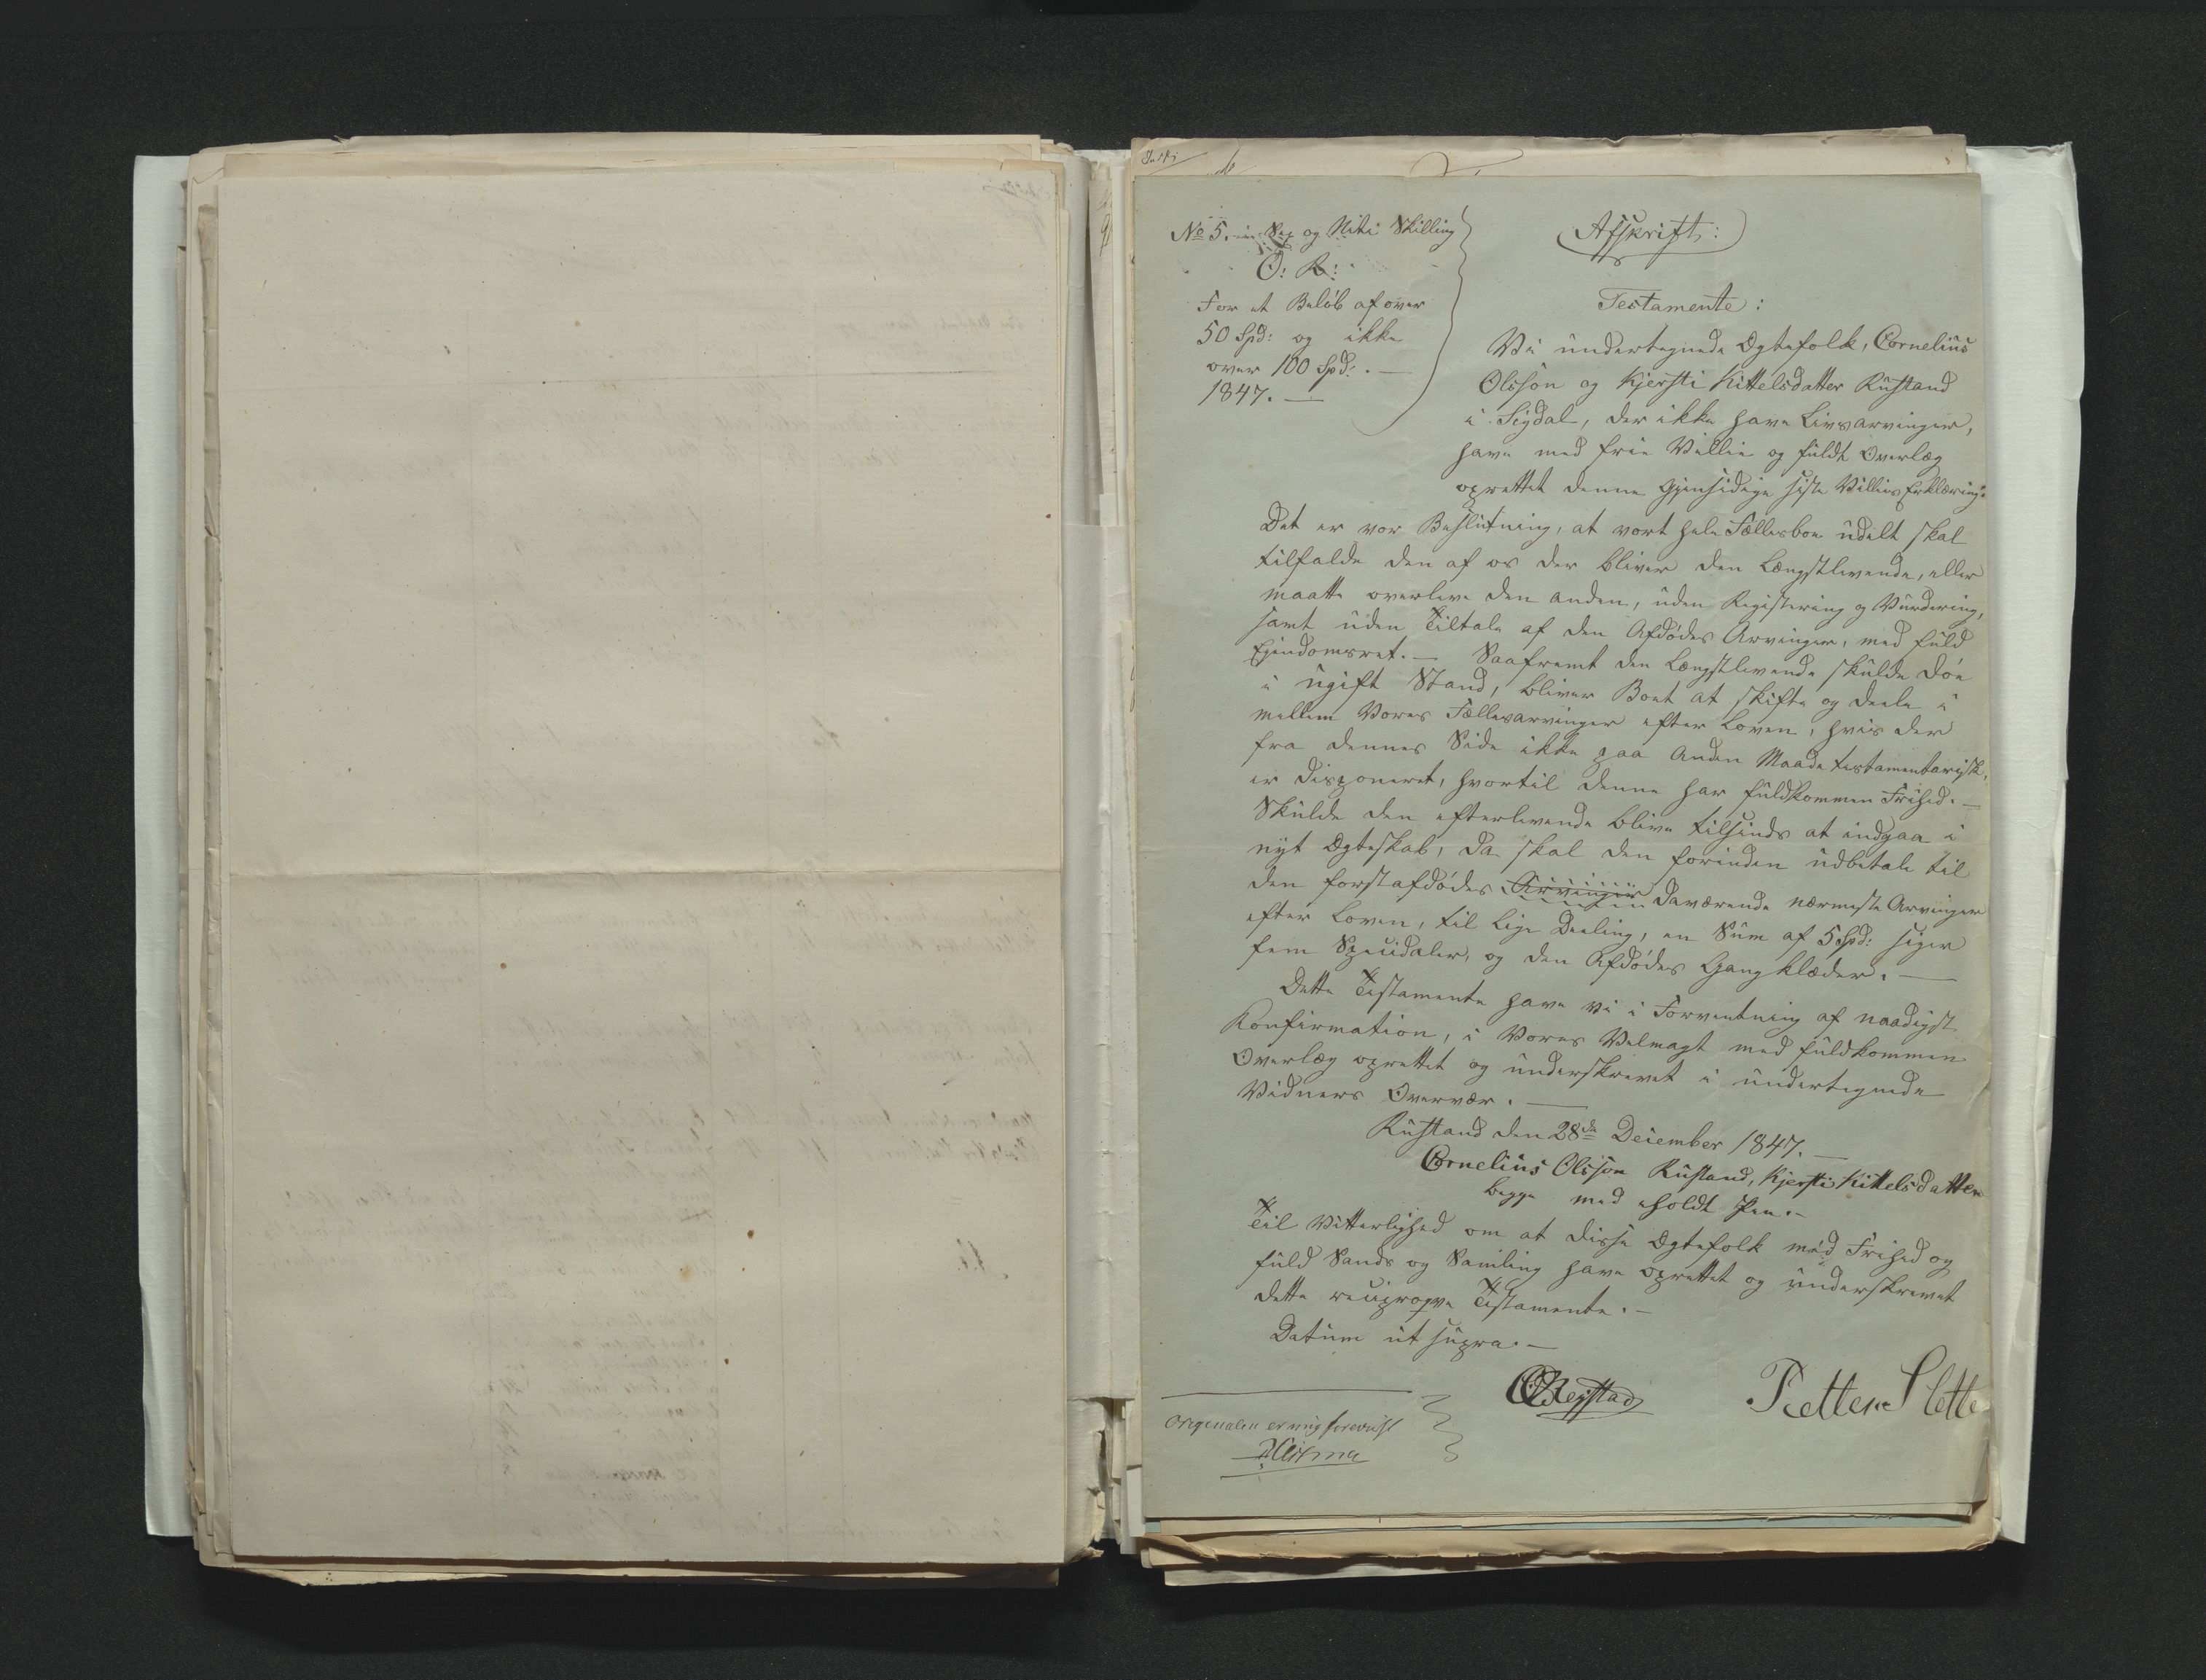 No 5. Sex og Niti Skilling
O: R:
For et Beløb af over
50 Spd: og ikke
over 100 Spd:. —
1847. —
Afskrift:
Testamente:
Vi undertegnede Ægtefolk, Cornelius
Olsson og Kjersti Kittelsdatter Rustand
i Sigdal, der ikke have Livsarvinger,
have med frie Villie og fuldt Overlæg
oprettet denne gjensidige siste Villies Erklæring:
Det er vor Beslutning, at vort hele Fællesboe udelt skal
tilfalde den af os der bliver den Længstlevende, eller
maatte overleve den anden, uden Registering og Vurdering,
samt uden Tiltale af den Afdødes Arvinger, med fuld
Ejendomsret. — Saafremt den Længstlevende skulde døe
i ugift Stand, bliver Boet at skifte og deele i
mellem Vores Fællesarvinger efter Loven, hvis der
fra dennes Side ikke paa anden Maade testamentarisk
er disponeret, hvortil denne har fuldkommen Frihed. —
Skulde den efterlevende blive tilsinds at indgaa i
nyt Ægteskab, da skal den forinden udbetale til
den førstafdødes Arvinger daværende nærmeste Arvinger
efter Loven, til lige Deeling, en Sum af 5 Spd: siger
fem Speciedaler, og den Afdødes Gangklæder. —
Dette Testamente have vi i Forventning af naadigst
Konfirmation, i Vores Velmagt med fuldkommen
Overlæg oprettet og underskrevet i undertegnede
Vidners Overvær. —
Rustand den 28de December 1847. —
Cornelius Olsson Rustand, Kjersti Kittelsdatter
begge med eholdt Pen. —
Til Vitterlighed om at disse Ægtefolk med Frihed og
fuld Sands og Samling have oprettet og underskrevet
dette reciproqve Testamente. —
Datum ut supra. —
Petter Slette
Originalen er mig foreviist